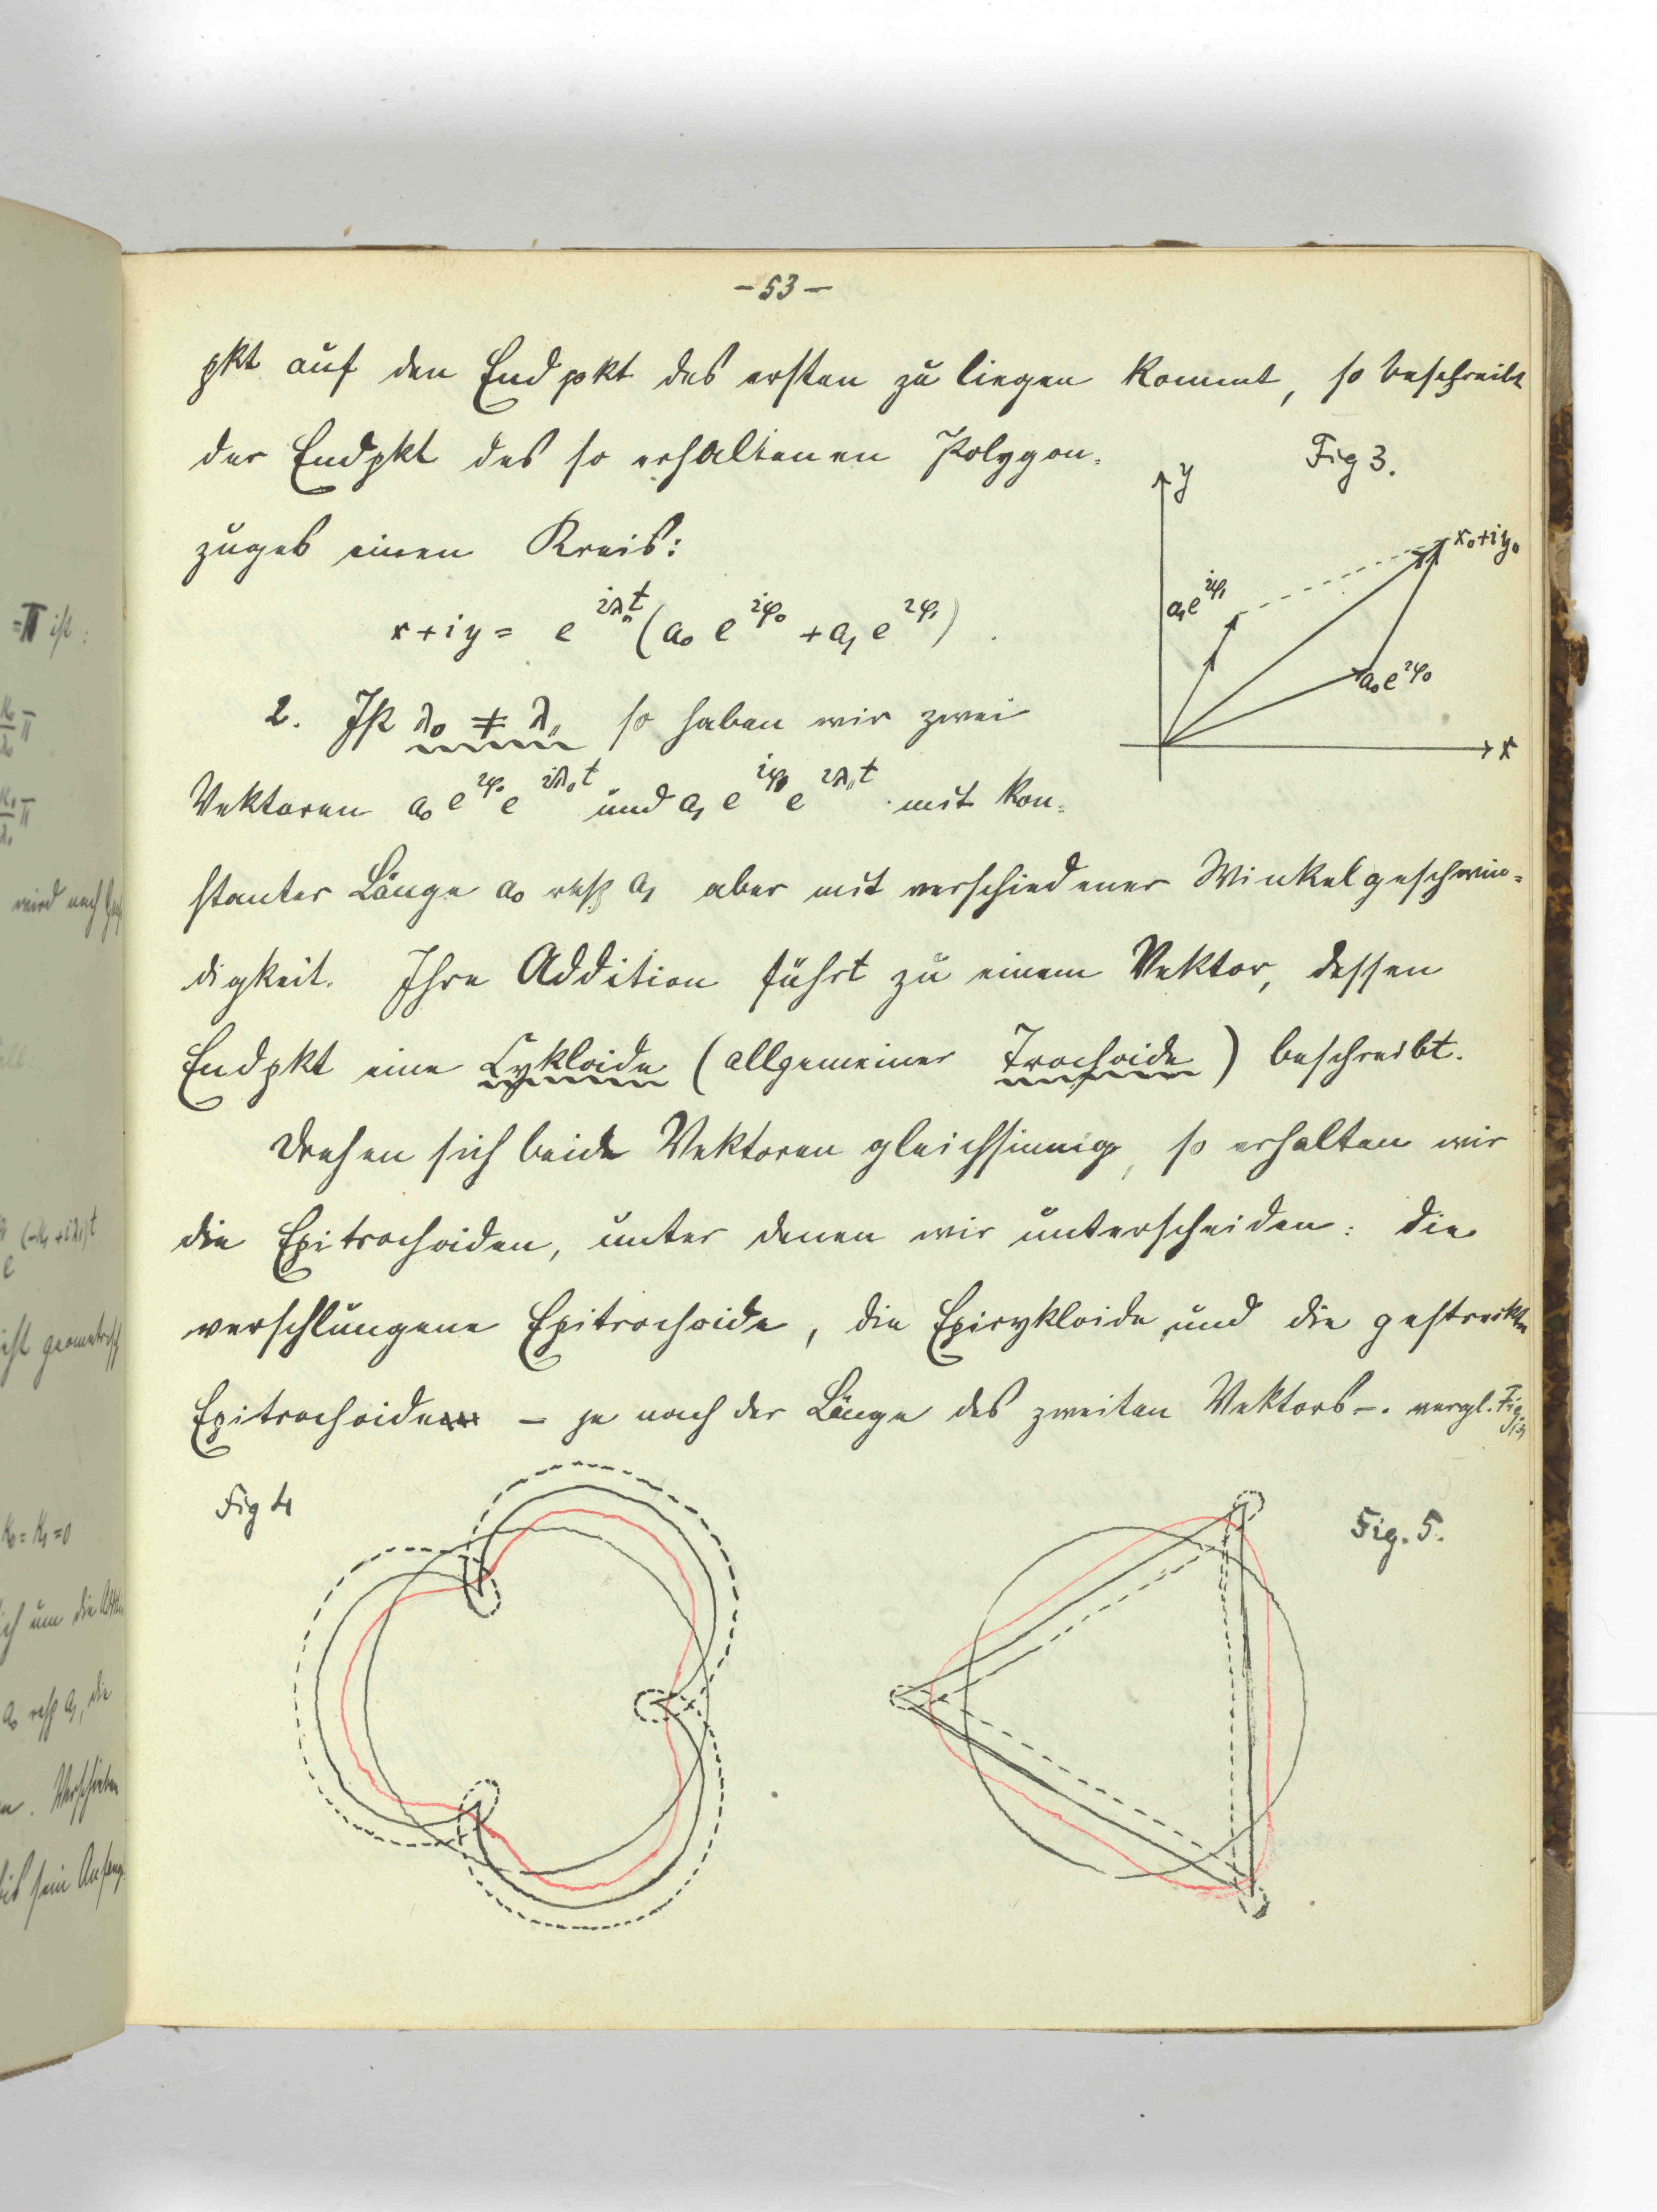 - 53 -
pkt auf den Endpkt des ersten zu liegen kommt, so beschreibt
der Endpkt des so erhaltenen Polygon=
zuges einen Kreis:
x + iy = e^{iλ₀t} (a₀ e^{iφ₀} + a₁ e^{iφ₁}) .
Fig 3.
y
x₀+iy₀
a₁e^{iφ₁}
a₀e^{iφ₀}
x
2. Ist λ₀ ≠ λ₁, so haben wir zwei
Vektoren a₀ e^{iφ₀} e^{iλ₀t} und a₁ e^{iφ₁} e^{iλ₁t} mit kon=
stanter Länge a₀ resp a₁ aber mit verschiedener Winkelgeschwin=
digkeit. Ihre Addition führt zu einem Vektor, dessen
Endpkt eine Cykloide (allgemeiner Trochoide) beschreibt.
Drehen sich beide Vektoren gleichsinnig, so erhalten wir
die Epitrochoiden, unter denen wir unterscheiden: die
verschlungene Epitrochoide, die Epicykloide und die gestreckte
Epitrochoide – je nach der Länge des zweiten Vektors –. vergl. Fig
Fig 4
Fig. 5.
=π ist:
wird nach
K₀ = K₁ = 0
ich um die
a₀ resp a₁, die
sein Anfang